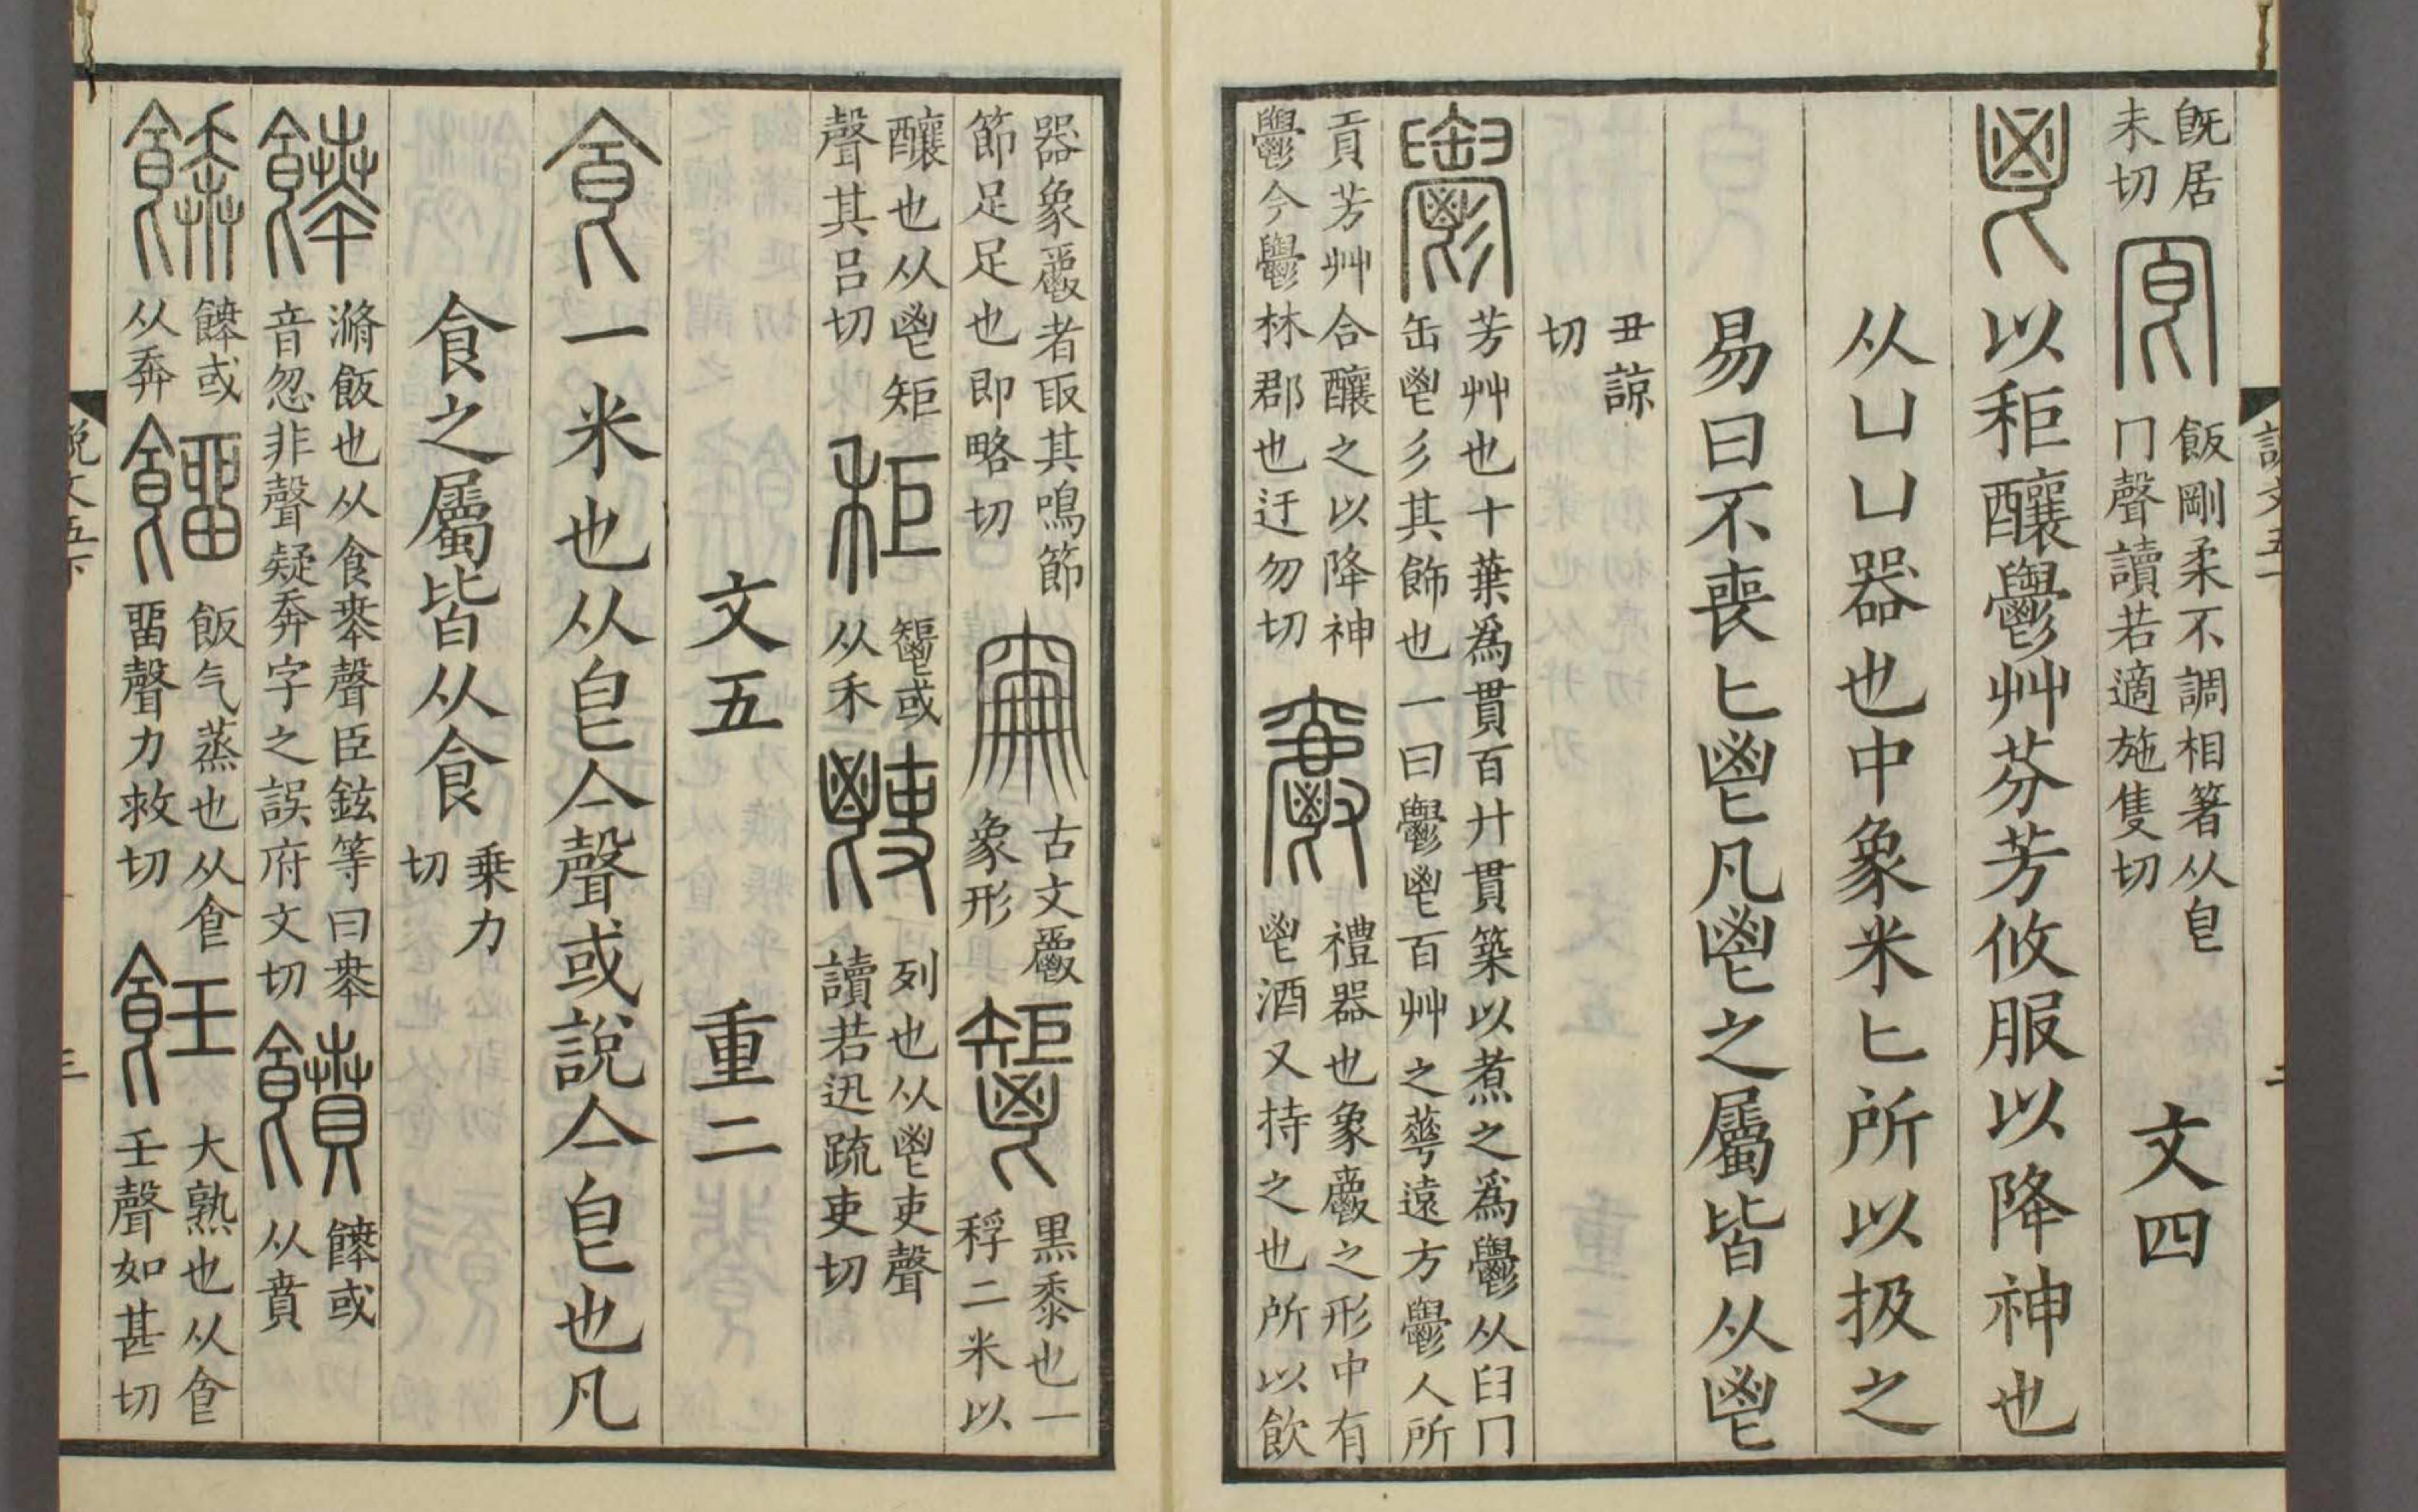 旣居
未切
冟
飯剛柔不調相著从皀
冂聲讀若適施隻切
文四
鬯
以秬釀鬱艸芬芳攸服以降神也
从凵凵器也中象米匕所以扱之
易曰不喪匕鬯凡鬯之屬皆从鬯
丑諒
切
鬱
芳艸也十葉爲貫百廾貫築以煮之爲鬱从臼冂
缶鬯彡其飾也一曰鬱鬯百艸之華遠方鬱人所
貢芳艸合釀之以降神
鬱今鬱林郡也迂勿切
爵
禮器也象爵之形中有
鬯酒又持之也所以飮
器象爵者取其鳴節
節足足也即略切
古文爵
象形
黑黍也一
稃二米以
釀也从鬯矩
聲其呂切
秬
或
从禾
列也从鬯吏聲
讀若迅疏吏切
文五
重二
食
一米也从皀亼聲或說亼皀也凡
食之屬皆从食
乗力
切
餴
滫飯也从食𠦪聲臣鉉等曰𠦪
音忽非聲疑奔字之誤府文切
饙
餴或
从賁
餴或
从奔
飯气蒸也从食
畱聲力救切
飪
大熟也从食
壬聲如甚切